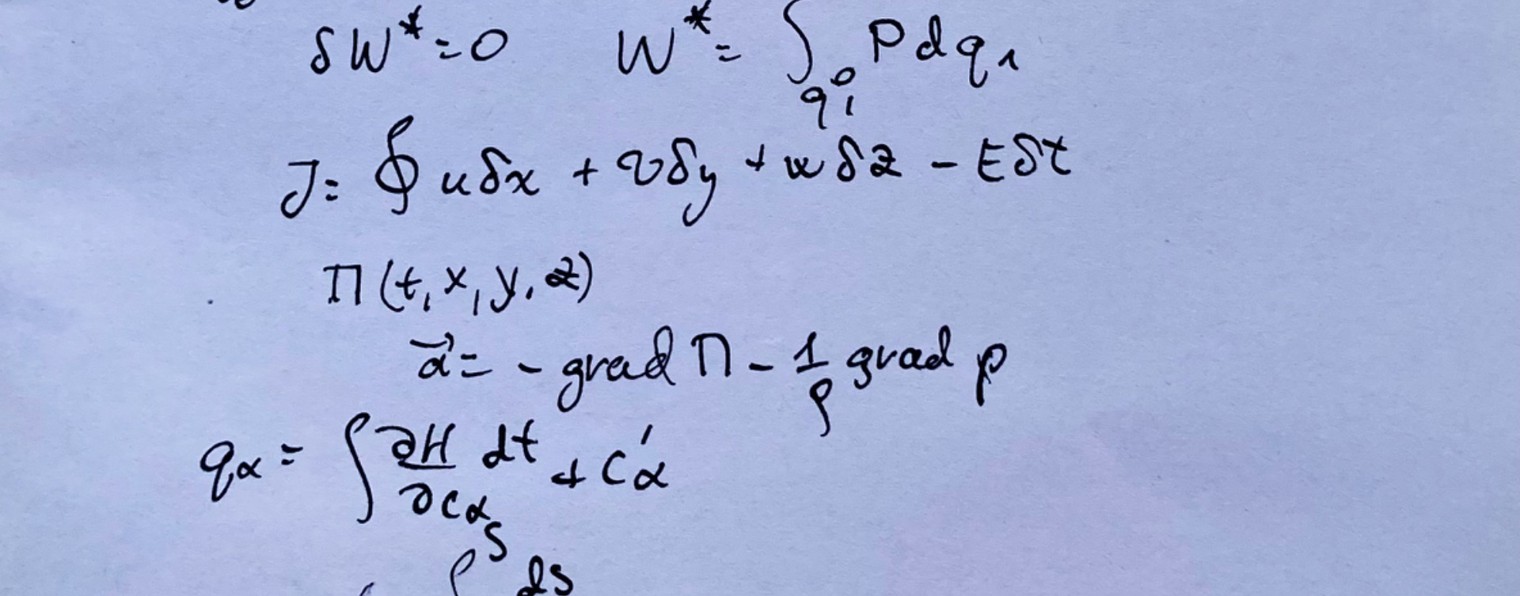 δW* = 0    W* = ∫_{q₁⁰} P dq₁
J = ∮ uδx + vδy + wδz − Eδt
Π(t, x, y, z)
a⃗ = − grad Π − 1/ρ grad p
q_α = ∫ ∂H/∂C_α dt + C'_α
∫^S ds